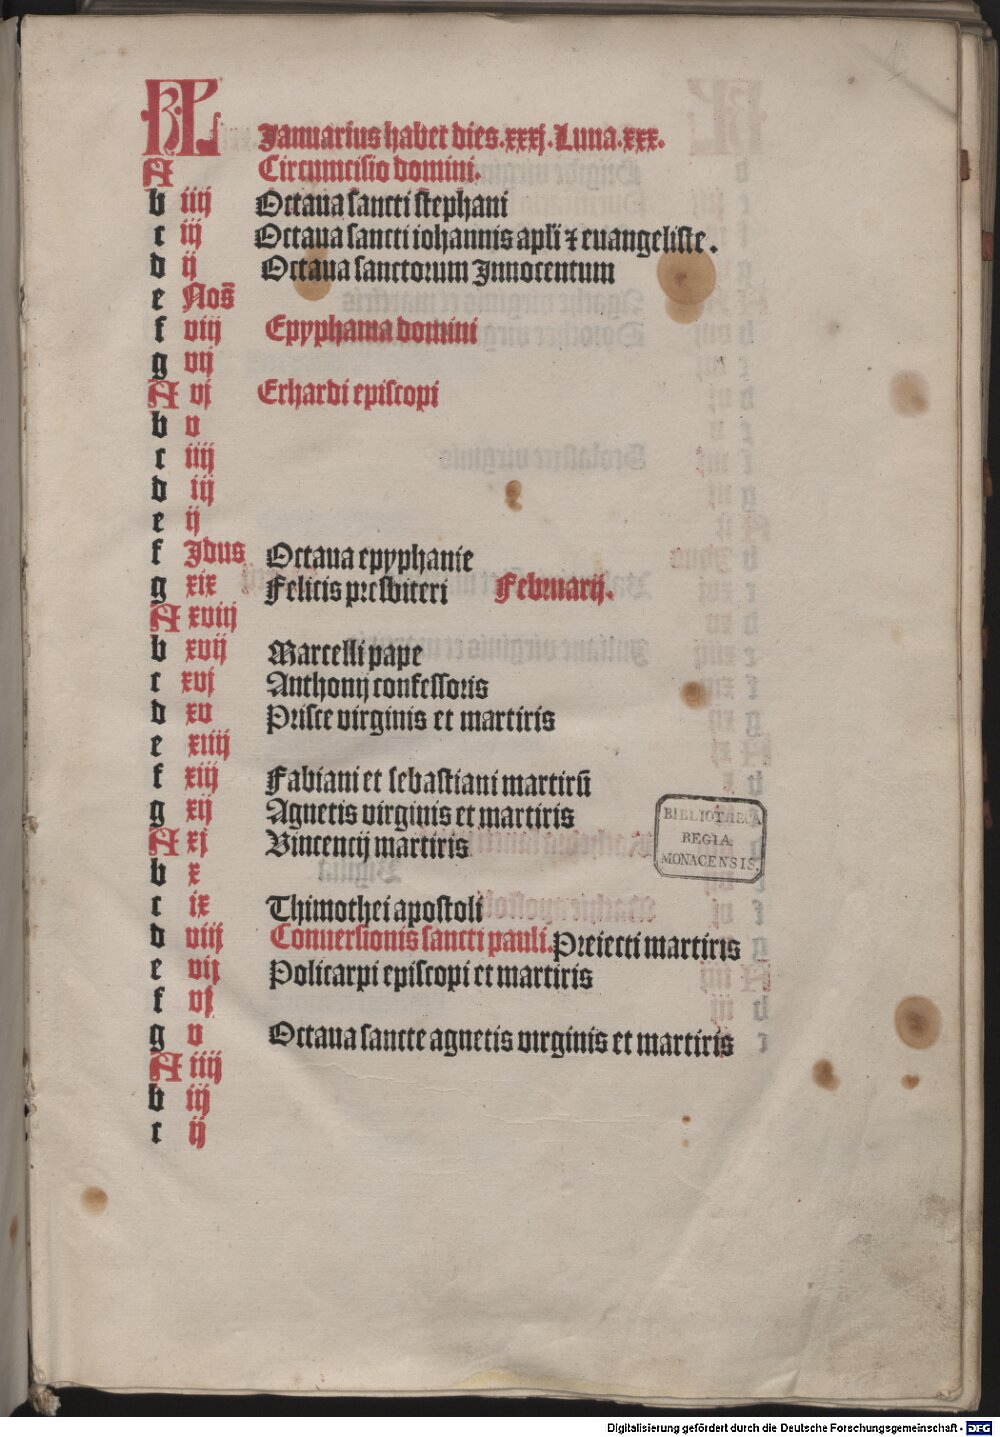 KL Januarius habet dies .xxxj. Luna .xxx.
A Circumcisio domini.
b iiij Octaua sancti stephani
c iij Octaua sancti iohannis apli ⁊ euangeliste.
d ij Octaua sanctorum Innocentum
e Nos̄
f viij Epyphania domini
g vij
A vj Erhardi episcopi
b v
c iiij
d iij
e ij
f Jdus Octaua epyphanie
g xix Felicis presbiteri Februarij.
A xviij
b xvij Marcelli pape
c xvj Anthonij confessoris
d xv Prisce virginis et martiris
e xiiij
f xiij Fabiani et sebastiani martirū
g xij Agnetis virginis et martiris
A xj Vincencij martiris
b x
c ix Thimothei apostoli
d viij Conuersionis sancti pauli. Preiecti martiris
e vij Policarpi episcopi et martiris
f vj
g v Octaua sancte agnetis virginis et martiris
A iiij
b iij
c ij
BIBLIOTHECA
REGIA
MONACENSIS.
Digitalisierung gefördert durch die Deutsche Forschungsgemeinschaft - DFG